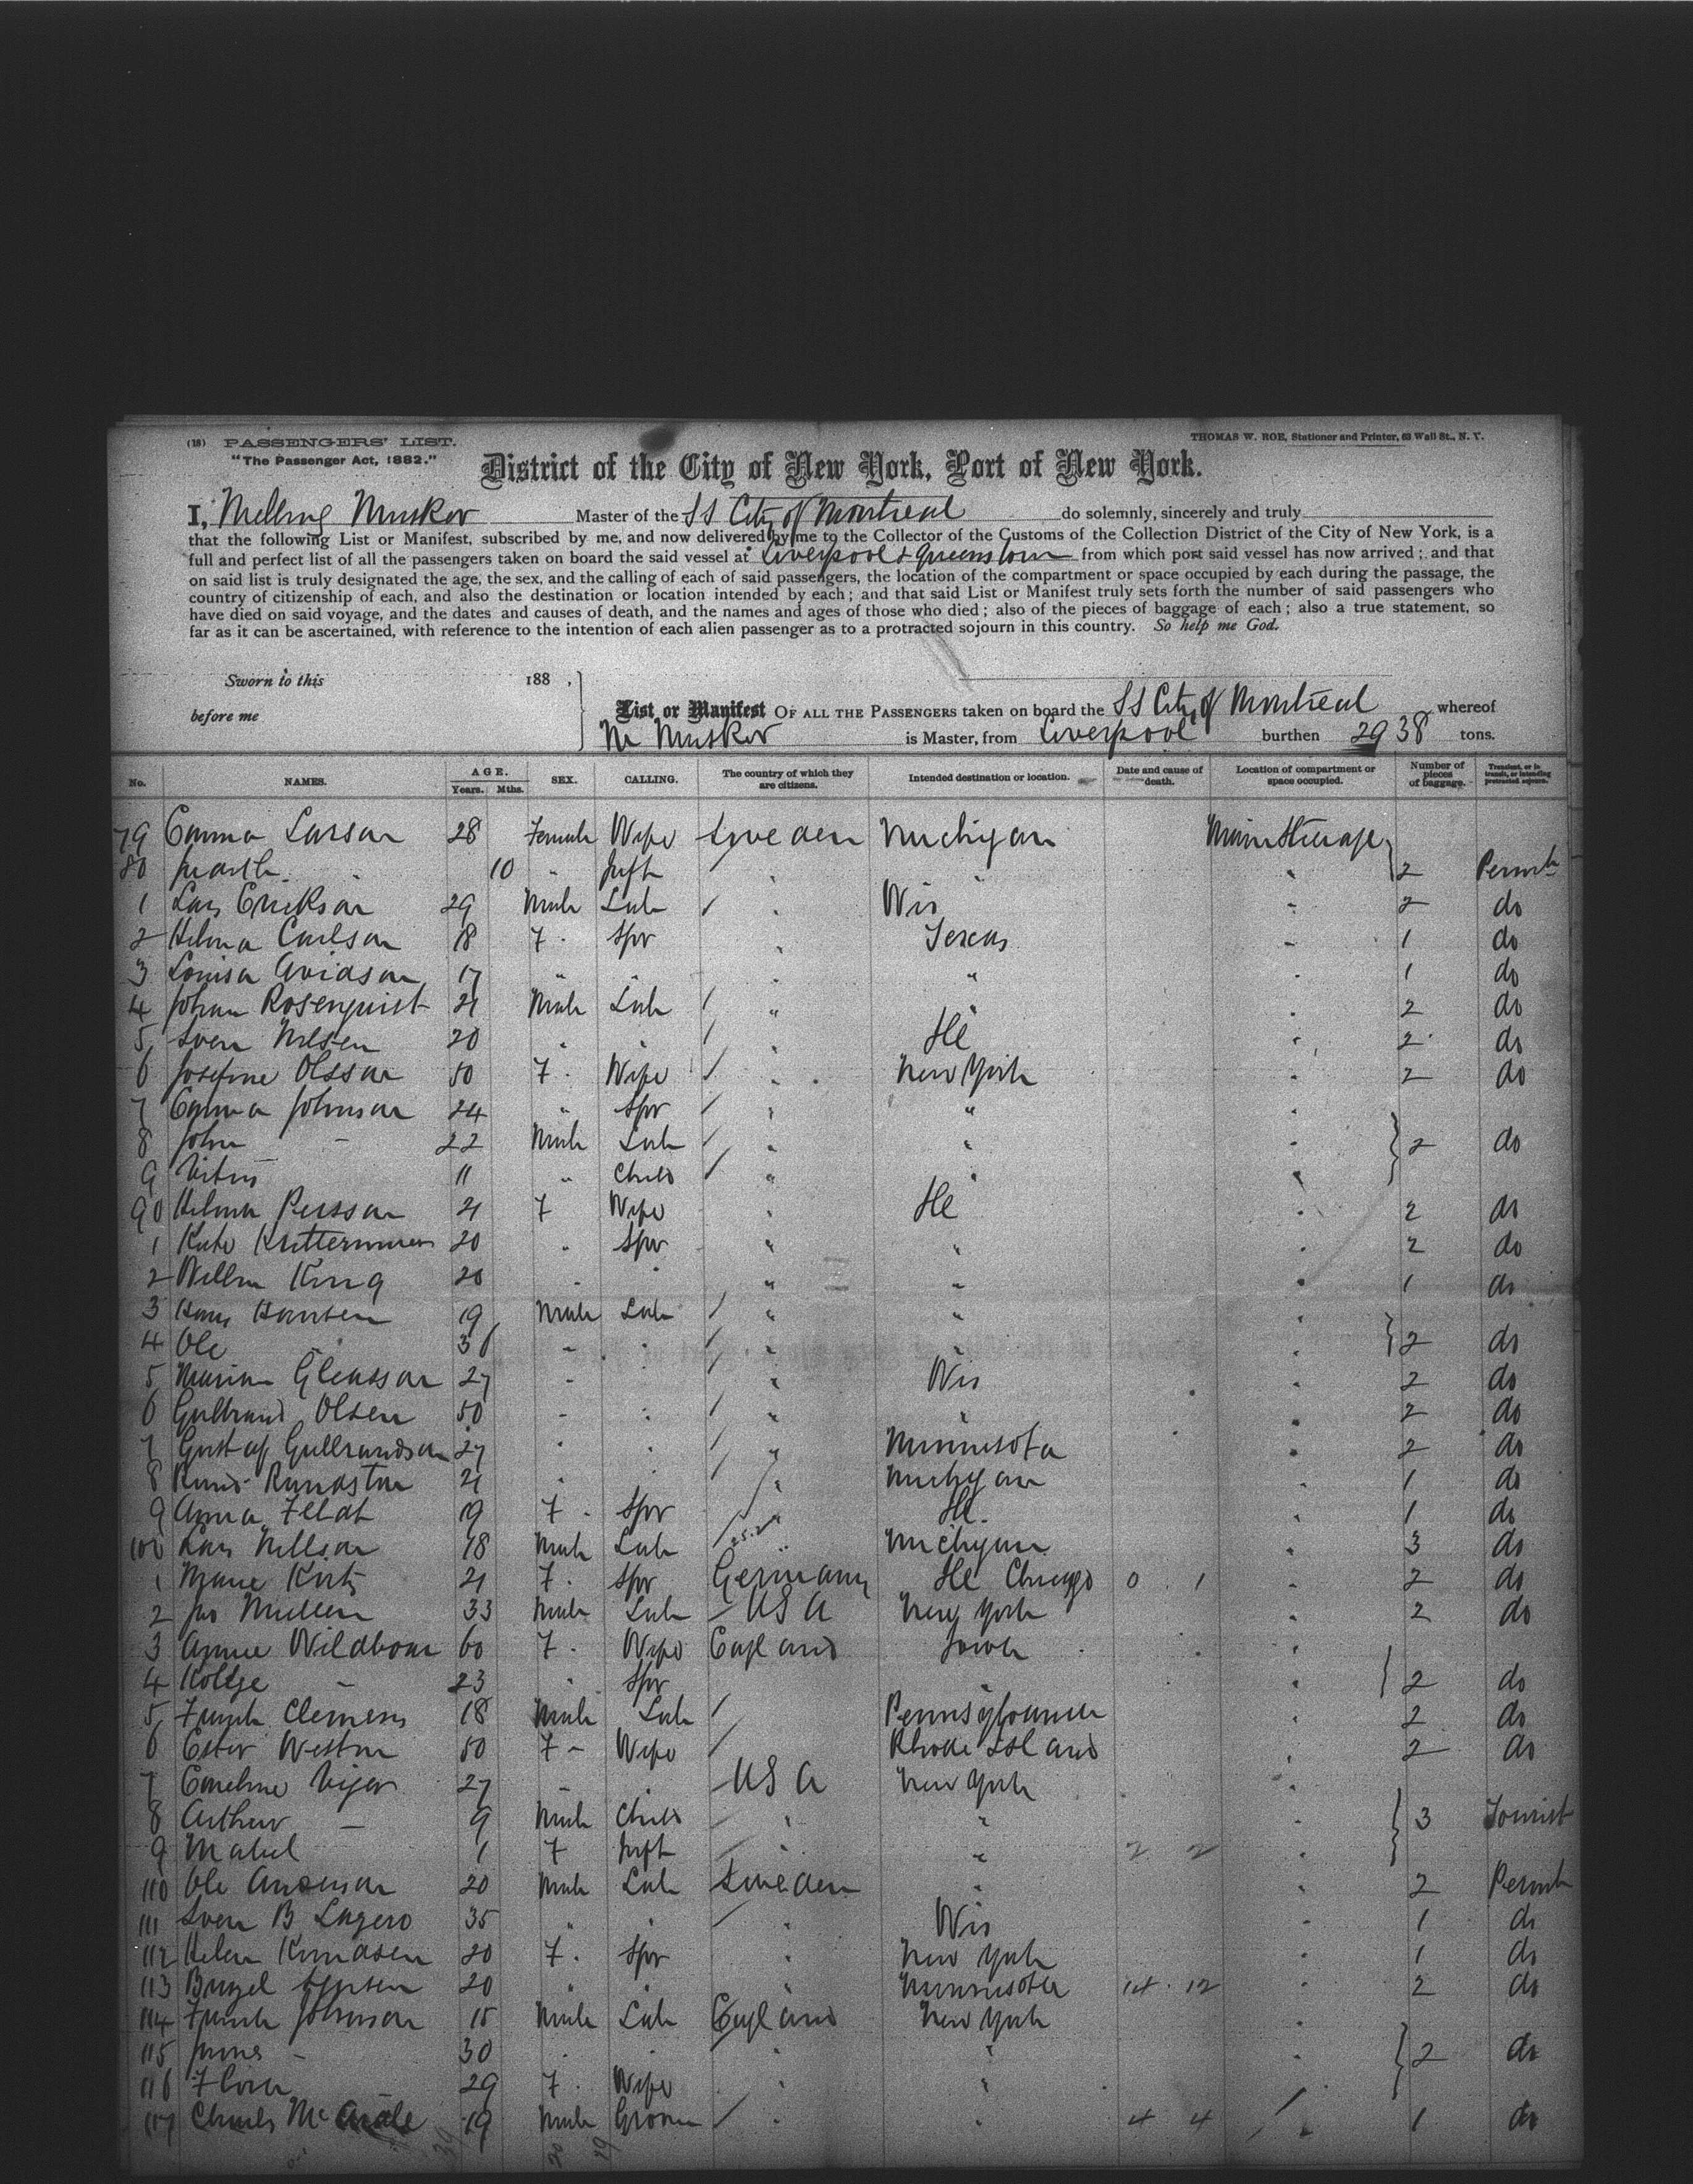 (18) PASSENGERS' LIST.
THOMAS W. ROE, Stationer and Printer, 63 Wall St., N. Y.
"The Passenger Act, 1882."
District of the City of New York, Port of New York.
I, Melling Musker Master of the SS City of Montreal do solemnly, sincerely and truly
that the following List or Manifest, subscribed by me, and now delivered by me to the Collector of the Customs of the Collection District of the City of New York, is a
full and perfect list of all the passengers taken on board the said vessel at Liverpool & Queenstown from which port said vessel has now arrived; and that
on said list is truly designated the age, the sex, and the calling of each of said passengers, the location of the compartment or space occupied by each during the passage, the
country of citizenship of each, and also the destination or location intended by each; and that said List or Manifest truly sets forth the number of said passengers who
have died on said voyage, and the dates and causes of death, and the names and ages of those who died; also of the pieces of baggage of each; also a true statement, so
far as it can be ascertained, with reference to the intention of each alien passenger as to a protracted sojourn in this country. So help me God.
Sworn to this 188 ,
before me
List or Manifest OF ALL THE PASSENGERS taken on board the SS City of Montreal whereof
M Musker is Master, from Liverpool burthen 2938 tons.
No. NAMES. AGE. Years. Mths. SEX. CALLING. The country of which they are citizens. Intended destination or location. Date and cause of death. Location of compartment or space occupied. Number of pieces of baggage. Transient, or in transit, or intending protracted sojourn.
79 Emma Larson 28 Female Wife Sweden Michigan Main Steerage
80 10 " Inft " " " 2 Permt
1 Lars Erickson 29 Male Lab " Wis " 2 do
2 Helma Carlson 18 F. Spr " Texas " 1 do
3 Louisa Avidson 17 " " " " " 1 do
4 Johan Rosenquist 21 Male Lab " " " 2 do
5 Sven Nilsen 20 " " " Ill " 2 do
6 Josefine Olsson 50 F. Wife " New York " 2 do
7 Emma Johnson 24 " Spr " " "
8 John - 22 Male Lab " " " 2 do
9 11 " Child " " "
90 Helma Persson 21 F Wife " Ill " 2 do
1 Kate 20 " Spr " " " 2 do
2 King 20 " " " " " 1 do
3 Hans Hansen 19 Male Lab " " "
4 Ole - 36 " " " " " 2 do
5 Gleasson 27 " " " Wis " 2 do
6 Gulbrand Olsen 50 " " " " " 2 do
7 Gustaf Gulbrandson 27 " " " Minnesota " 2 do
8 21 " " " Michigan " 1 do
9 Anna Feldt 19 F. Spr " Ill. " 1 do
100 Lars Nilsson 18 Male Lab " Michigan " 3 do
1 Marie 21 F. Spr Germany Ill Chicago 0 . 1 " 2 do
2 Jno Mullen 33 Male Lab USA New York " 2 do
3 Annie 60 F. Wife England Iowa "
4 - 23 " Spr " " 2 do
5 Frank Clemens 18 Male Lab Pennsylvania " 2 do
6 Ester Weston 50 F - Wife Rhode Island " 2 do
7 Emeline 27 " " USA New York "
8 Arthur - 9 Male Child " " " 3 Tourist
9 Mabel 1 F Inft " 2 2 "
110 Ole 20 Male Lab Sweden " " 2 Permt
111 Sven B 35 " " " Wis " 1 do
112 Helen Knudsen 20 F. Spr " New York " 1 do
113 20 " " " Minnesota 14 . 12 " 2 do
114 Frank Johnson 15 Male Lab England New York "
115 James - 30 " " " " " 2 do
116 Flora 29 F. Wife " " "
117 Charles McArdle 19 Male Groom " " 4 4 " 1 do